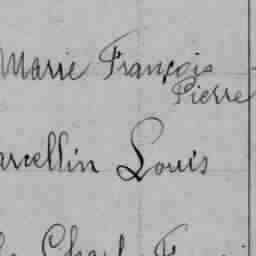 Marie François
Pierre
arcellin Louis